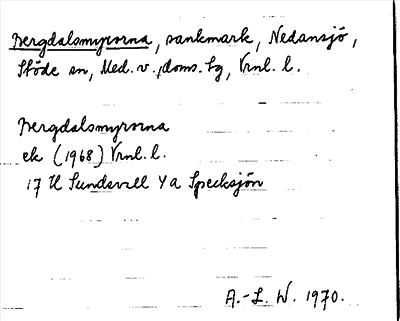 Bergdalsmyrorna, sankmark, Nedansjö,
Stöde sn, Med. v., doms. tg, Vrnl. l.
Bergdalsmyrorna
ek (1968) Vrnl. l.
17 H Sundsvall 4 a Specksjön
A.-L. W. 1970.